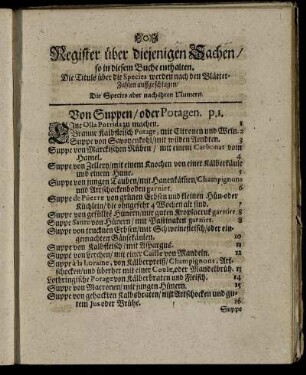 Register über diejenigen Sachen/
so in diesem Buche enthalten.
Die Titulo über die Species werden nach den Blätter-
Zahlen auffgeschlagen/
Die Species aber nach ihren Numern.
Von Suppen/ oder Potagen. p.1.
Eine Olla Potrida zu machen. 1
Braune Kalbfleisch Potage, mit Citronen und Wein. 2
Suppe von Savoyenkohl/ mit wilden Aendten. 3
Suppe von Märckischen Rüben/ mit einem Carbonat vom
Hamel. 4
Suppe von Zellery/ mit einem Knochen von einer Kälberkäule
und einem Hune. 5
Suppe von jungen Tauben/ mit Hanenkämmen/ Champignons
und Artschockenboden garniret. 6
Suppe de Pierre von grünen Erbsen und kleinen Hün- oder
Küchlein/ die ohngefehr 4 Wochen alt sind. 7
Suppe von gefüllte Hünern/ mit guten Kropsalat garniret 8
Suppe Santé von Hünern/ mit garniret. 9
Suppe von trucknen Erbsen/ mit Schweinefleisch/ oder ein-
gemachten Gänsekäulen. 10
Suppe von Kalbfleisch/ mit Spargus. 11
Suppe von Lerchen/ mit einer Coulle von Mandeln. 12
Suppe à la Loraine, von Kälberpreiß/ Champignons/ Art-
schocken/ und überher mit einer Coule, oder Mandelbrüh. 13
Lothringische Potage von Kälberbraten und Fleisch. 14
Suppe von Macronen/ mit jungen Hünern. 15
Suppe von gehackten Kalbsbraten/ mit Artschocken und gu-
tem Jus oder Brühe. 16
Suppe